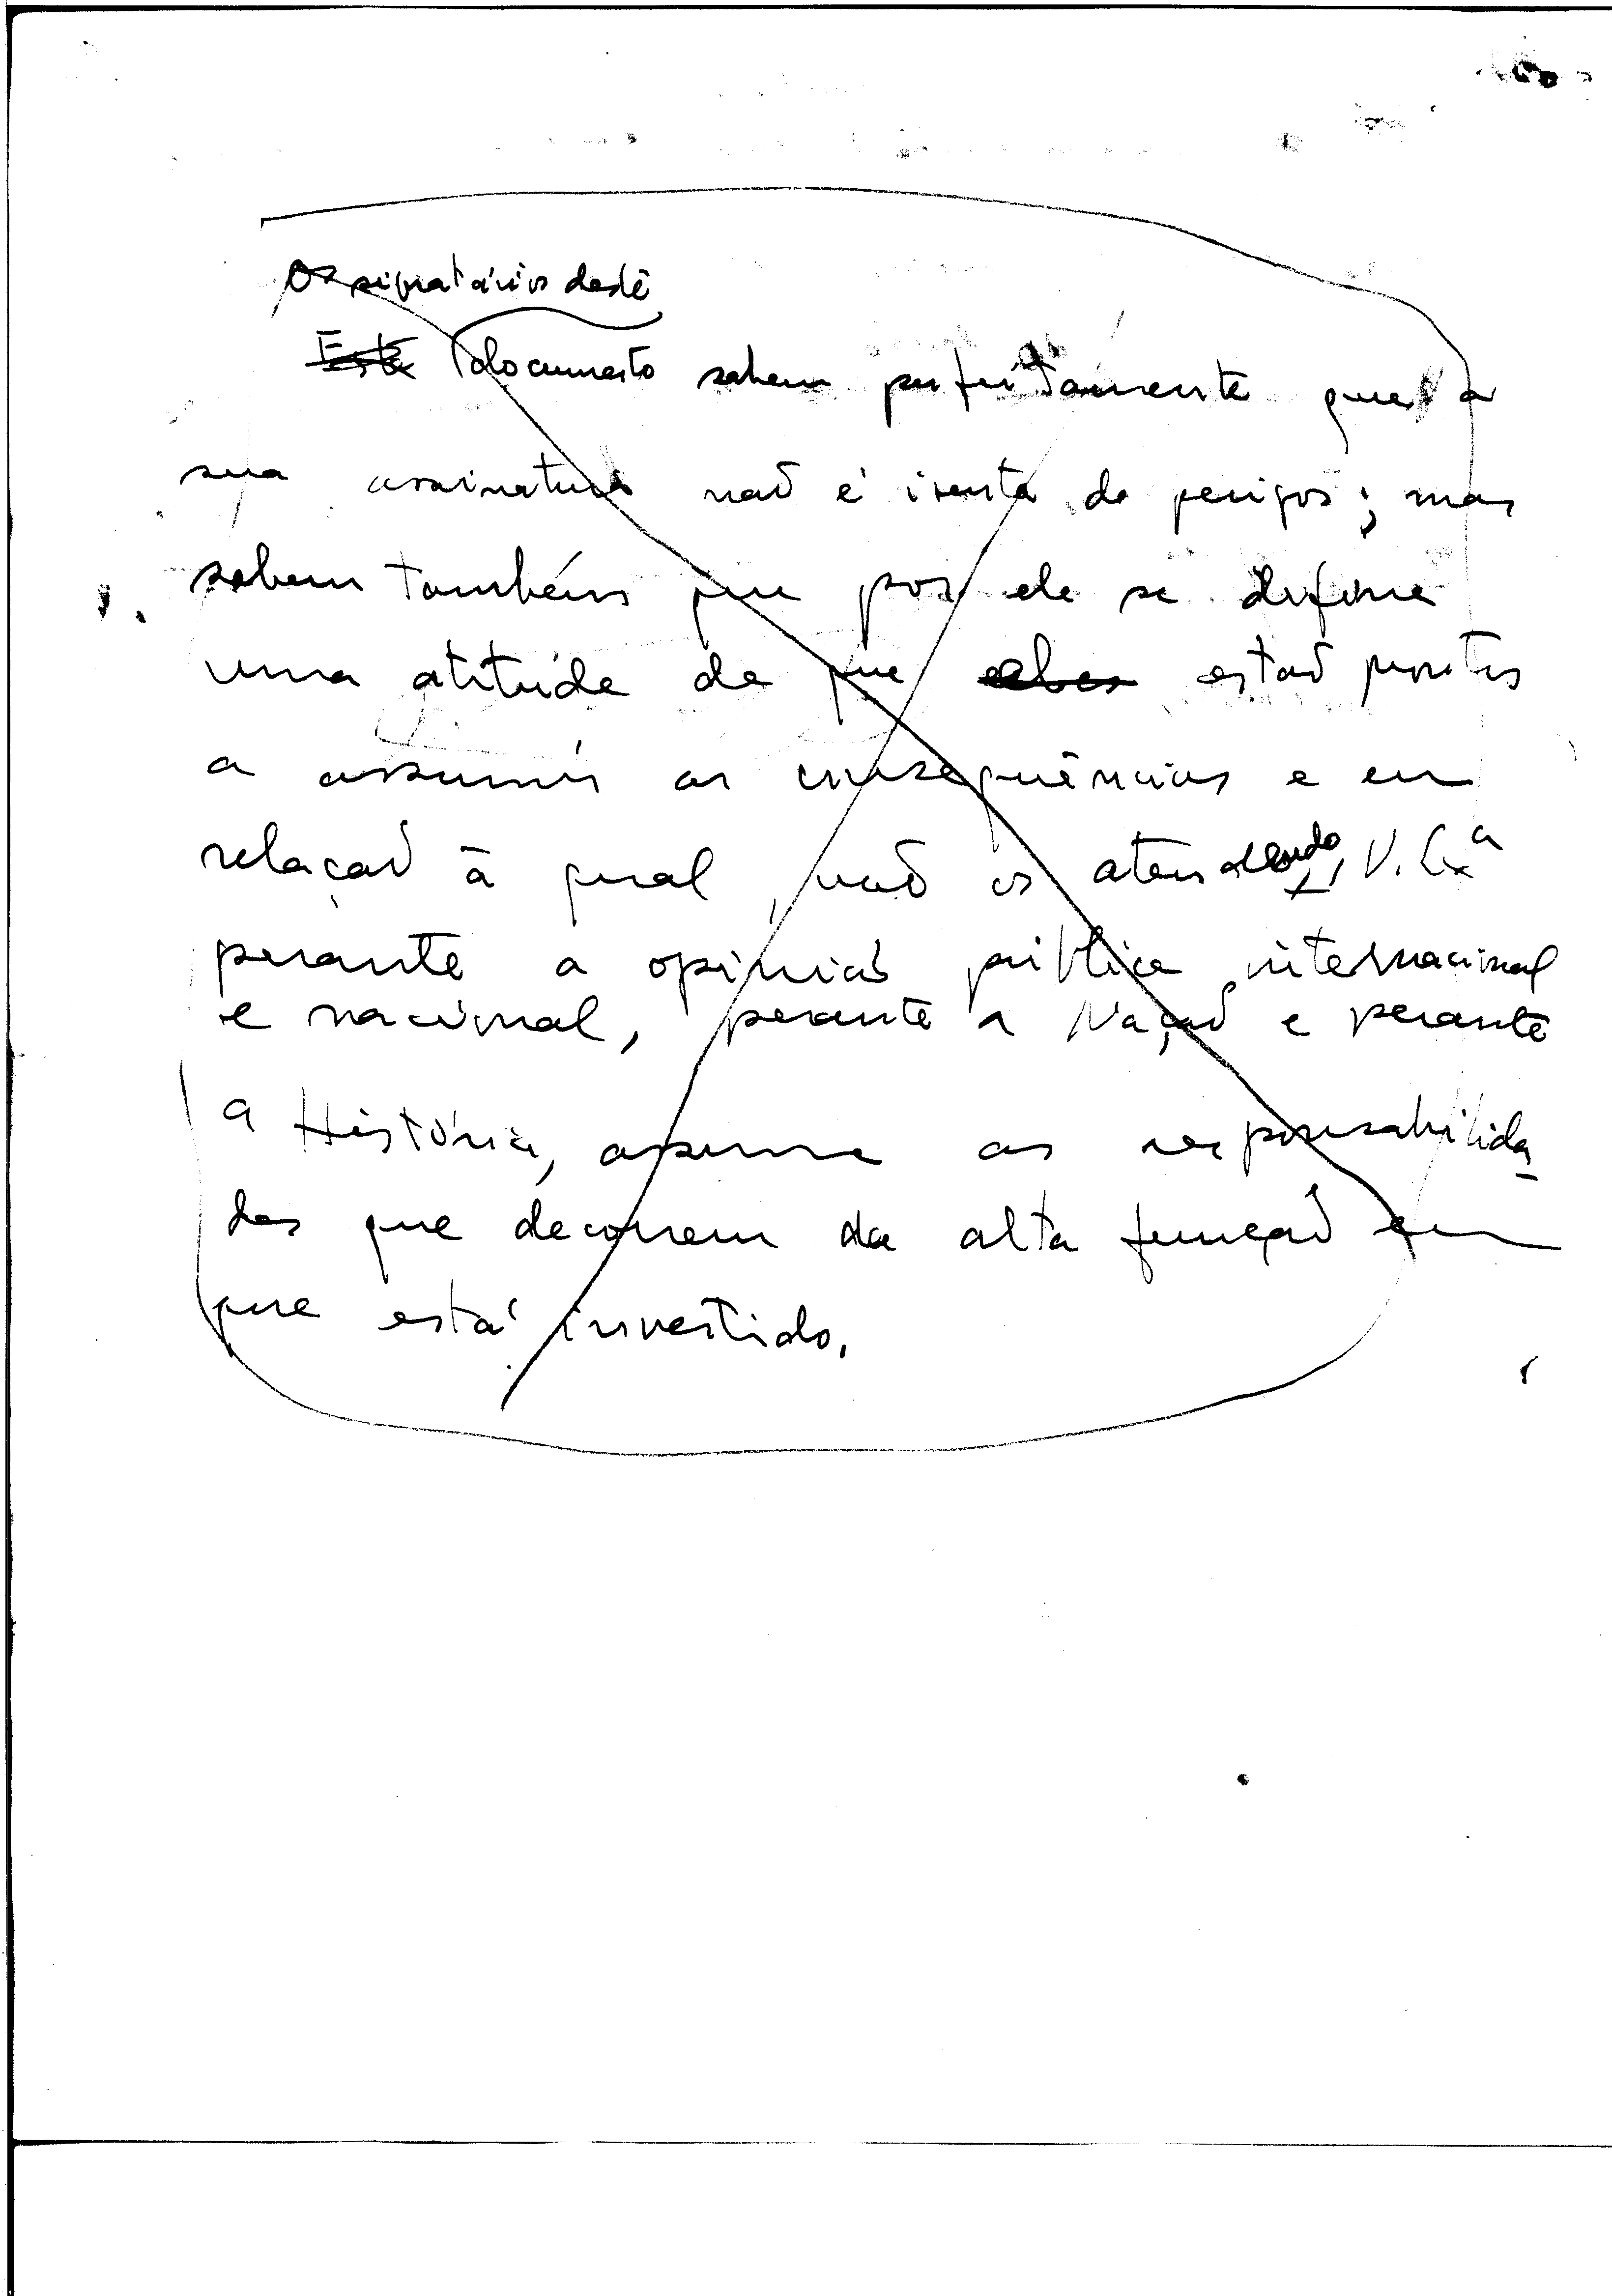 Os signatários deste
Este documento sabem perfeitamente que a
sua assinatura não é isenta de perigos; mas
sabem também que por ele se define
uma atitude de que estão prontos
a assumir as consequências e em
relação à qual, não os atendendo, V. Exª
perante a opinião pública internacional
e nacional, perante a Nação e perante
a História, assume as responsabilida-
des que decorrem da alta função em
que está investido.